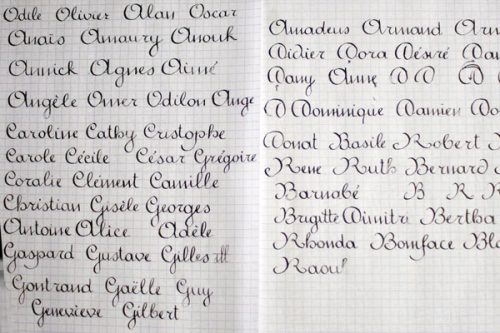 Odile Olivier Alan Oscar
Anaïs Amaury Anouk
Annick Agnès Aimé
Angèle Omer Odilon Ange
Caroline Cathy Cristophe
Carole Cécile César Grégoire
Coralie Clément Camille
Christian Gisèle Georges
Antoine Alice Adèle
Gaspard Gustave Gilles
Gontrand Gaëlle Guy
Geneviève Gilbert
Amadeus Armand
Didier Dora Désiré
Dany Anne D D D
D Dominique Damien
Donat Basile Robert
Rene Ruth Bernard
Barnabé B R
Brigitte Dimitri Bertha
Rhonda Boniface
Raoul